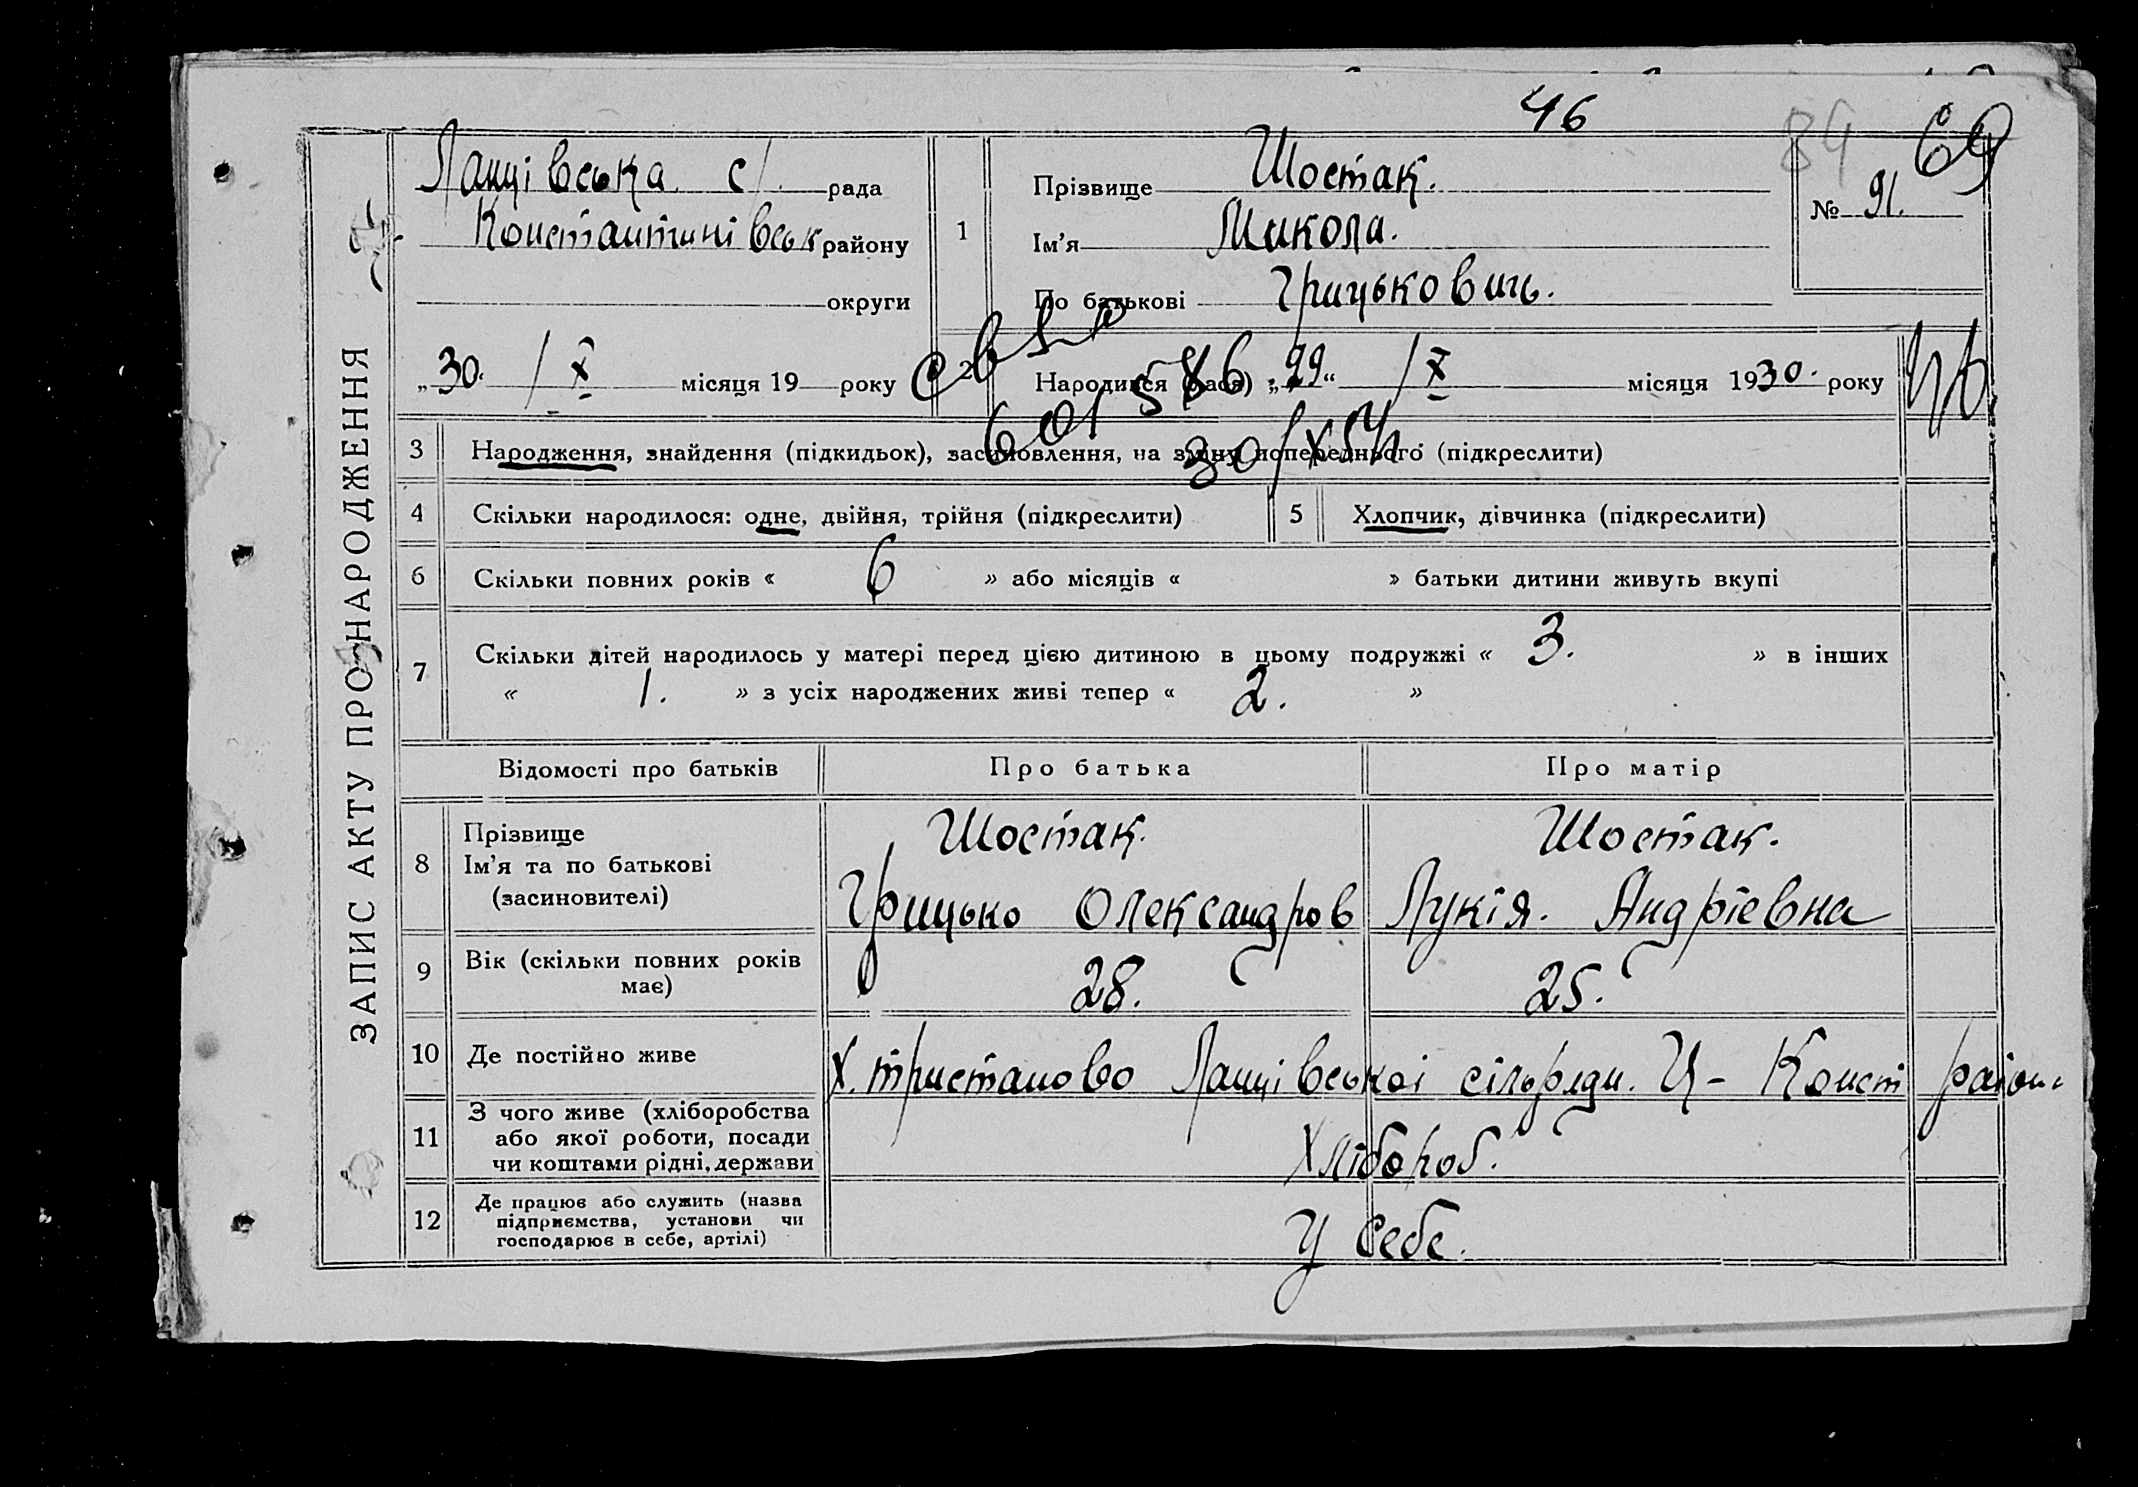 46
84 69
ЗАПИС АКТУ ПРО НАРОДЖЕННЯ
Ланцівська с/ рада
Константинівськ району
округи
„30. / X місяця 19 року
1
Прізвище Шостак.
Ім'я Микола.
По батькові Грицькович.
№ 91.
2 Народився (лася) „29“ / X місяця 1930. року
св
601586
30/X 54
46
3 Народження, знайдення (підкидьок), засиновлення, на зміну попереднього (підкреслити)
4 Скільки народилося: одне, двійня, трійня (підкреслити) 5 Хлопчик, дівчинка (підкреслити)
6 Скільки повних років « 6 » або місяців « » батьки дитини живуть вкупі
7 Скільки дітей народилось у матері перед цією дитиною в цьому подружжі « 3. » в інших
« 1. » з усіх народжених живі тепер « 2. »
Відомості про батьків Про батька Про матір
8 Прізвище
Ім'я та по батькові
(засиновителі)
Шостак. Шостак.
Грицько Олександров Лукія. Андріевна
9 Вік (скільки повних років має) 28. 25.
10 Де постійно живе Х. Тристаново Ланцівської сільради. Ц-Конст район
11 З чого живе (хліборобства
або якої роботи, посади
чи коштами рідні, держави
Хлібороб.
12 Де працює або служить (назва
підприємства, установи чи
господарює в себе, артілі)
У себе.